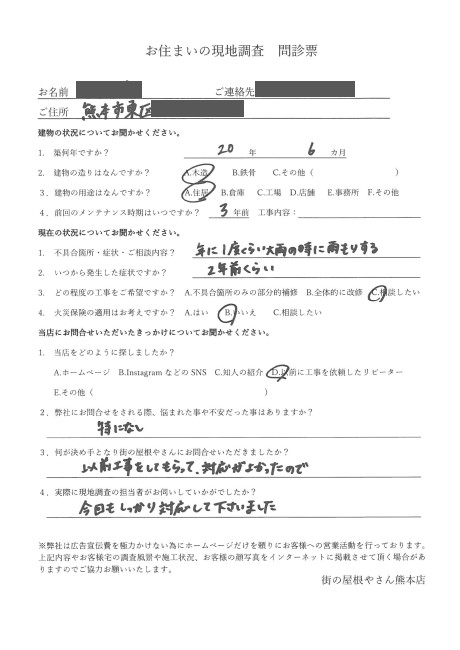 お住まいの現地調査　問診票
お名前　ご連絡先
ご住所　熊本市東区
建物の状況についてお聞かせください。
1.　築何年ですか？　20　年　6　カ月
2.　建物の造りはなんですか？　A.木造　B.鉄骨　C.その他（　）
3．建物の用途はなんですか？　A.住居　B.倉庫　C.工場　D.店舗　E.事務所　F.その他
4．前回のメンテナンス時期はいつですか？　3　年前　工事内容：
現在の状況についてお聞かせください。
1.　不具合箇所・症状・ご相談内容？　年に1度くらい大雨の時に雨もりする
2.　いつから発生した症状ですか？　2年前くらい
3.　どの程度の工事をご希望ですか？　A.不具合箇所のみの部分的補修　B.全体的に改修　C.相談したい
4.　火災保険の適用はお考えですか？　A.はい　B.いいえ　C.相談したい
当店にお問合せいただいたきっかけについてお聞かせください。
1.　当店をどのように探しましたか？
A.ホームページ　B.Instagram などの SNS　C.知人の紹介　D.以前に工事を依頼したリピーター
E.その他（　）
2．弊社にお問合せをされる際、悩まれた事や不安だった事はありますか？
特になし
3．何が決め手となり街の屋根やさんにお問合せいただきましたか？
以前工事をしてもらって、対応がよかったので
4．実際に現地調査の担当者がお伺いしていかがでしたか？
今回もしっかり対応して下さいました
※弊社は広告宣伝費を極力かけない為にホームページだけを頼りにお客様への営業活動を行っております。
上記内容やお客様宅の調査風景や施工状況、お客様の顔写真をインターネットに掲載させて頂く場合があ
りますのでご協力お願いいたします。
街の屋根やさん熊本店